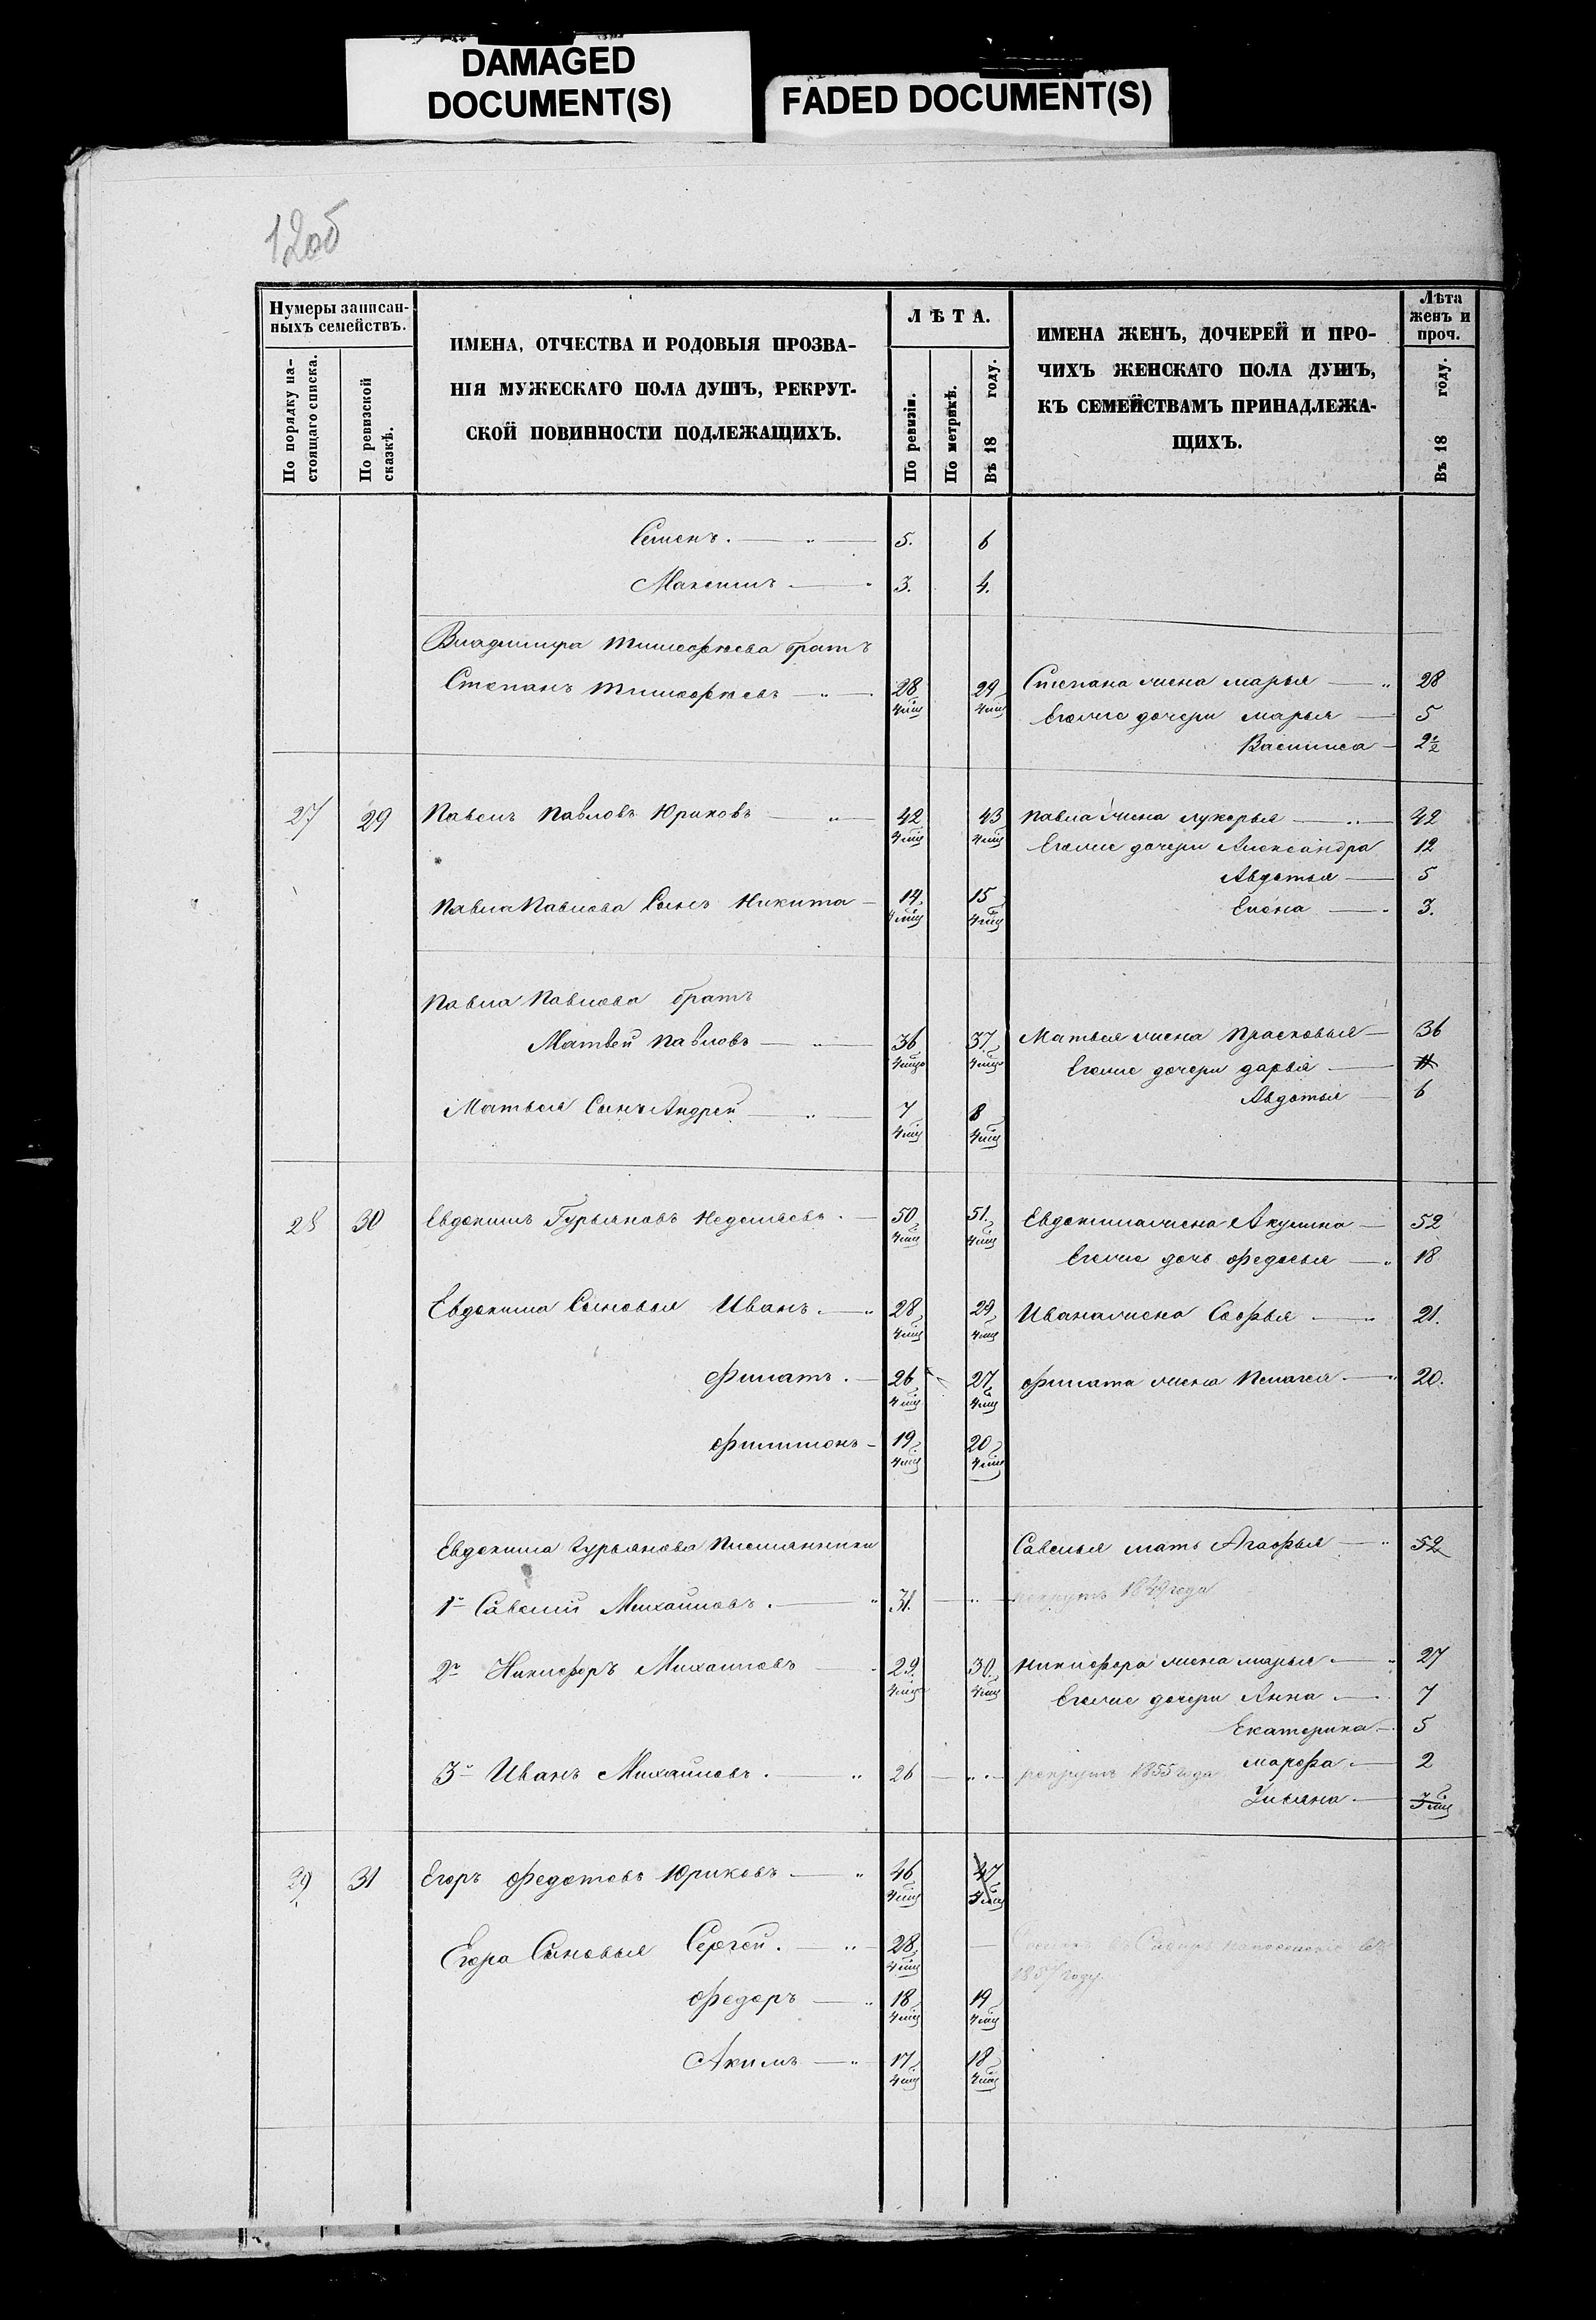 DAMAGED
DOCUMENT(S)
FADED DOCUMENT(S)
12об
Нумеры записан-
ныхъ семействъ.
По порядку на-
стоящаго списка.
По ревизской
сказкѣ.
ИМЕНА, ОТЧЕСТВА И РОДОВЫЯ ПРОЗВА-
НІЯ МУЖЕСКАГО ПОЛА ДУШЪ, РЕКРУТ-
СКОЙ ПОВИННОСТИ ПОДЛЕЖАЩИХЪ.
ЛѢТА.
По ревизіи.
По метрикѣ.
Въ 18 году.
ИМЕНА ЖЕНЪ, ДОЧЕРЕЙ И ПРО-
ЧИХЪ ЖЕНСКАГО ПОЛА ДУШЪ,
КЪ СЕМЕЙСТВАМЪ ПРИНАДЛЕЖА-
ЩИХЪ.
Лѣта
женъ и
проч.
Въ 18 году.
Семенъ. 5. 6
Максимъ 3. 4.
Владимира Тимофѣева братъ
Степанъ Тимофѣевъ 28 29 Степана жена марья 28
4 мѣц 4 мѣц Егоже дочери марья 5
Василиса 2½
27 29 Павелъ Павловъ Юриковъ 42 43 Павла жена лукерья 42
4 мѣц 4 мѣц Егоже дочери Александра 12
Авдотья 5
Павла Павлова Сынъ Никита 14 15 Елена 3.
4 мѣц 4 мѣц
Павла Павлова братъ
Матвей Павловъ 36 37 Матвея жена Прасковья 36
4 мѣц 4 мѣц Егоже дочери дарья 11
Авдотья 6
Матвея Сынъ Андрей 7 8
4 мѣц 4 мѣц
28 30 Евдокимъ Гурьяновъ Неделяевъ. 50 51. Евдокима жена Акулина 52
4 мѣц 4 мѣц Егоже дочь Федосья 18
Евдокима Сыновья Иванъ. 28 29 Ивана жена Софья 21.
4 мѣц 4 мѣц
Филатъ. 26 27 Филата жена Пелагея. 20.
4 мѣц 4 мѣц
Филимонъ 19 20
4 мѣц 4 мѣц
Евдокима Гурьянова Племянники Савелья мать Агафья 52
1й Савелий Михайловъ. 31. рекрутъ 1849 года
2й Никифоръ Михайловъ 29. 30. Никифора жена марья 27
4 мѣц 4 мѣц Егоже дочери Анна 7
Екатерина 5
марфа 2
3й Иванъ Михайловъ. 26 рекрутъ 1855 года
Ульяна
29 31 Егоръ Федотовъ Юриковъ 46 47
4 мѣц 4 мѣц
Егора Сыновья Сергей. 28
4 мѣц
въ Сибирь на поселение въ
1857 году.
Федоръ 18 19
4 мѣц 4 мѣц
Акимъ 17 18
4 мѣц 4 мѣц